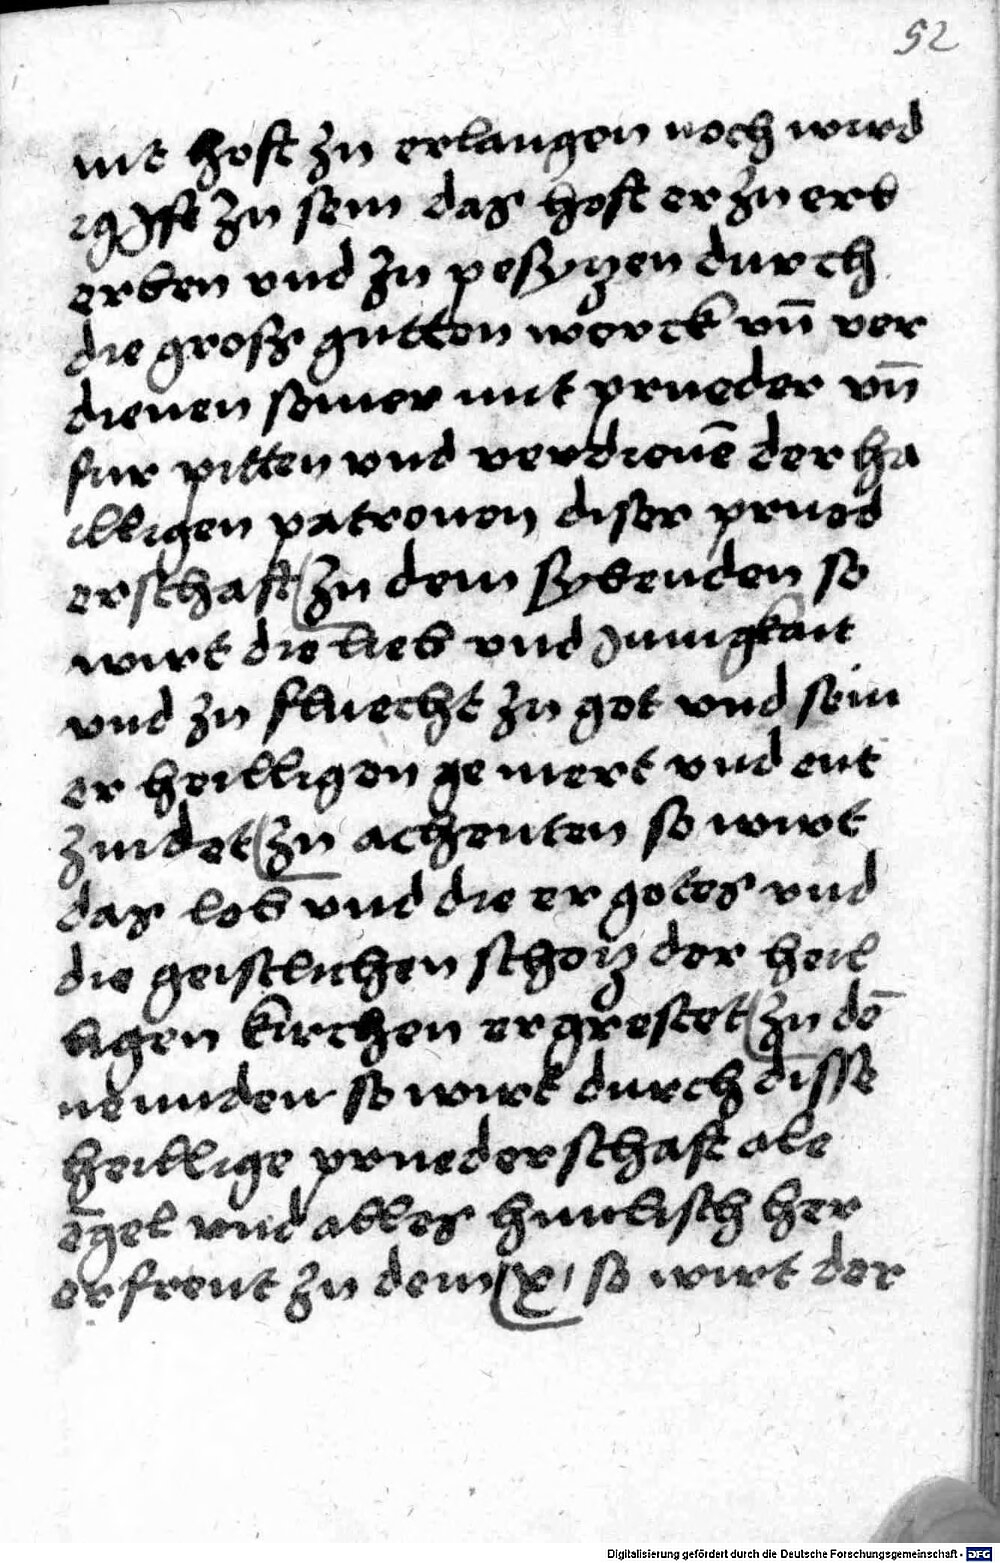 52
nit hoft zu erlangen noch wird
ist zu sein das hoft er zu erb
erben vnd zu pesytzen durch
die gross gutten werck vn̄ ver
dienen seiner mit prueder vn̄
fur pitten vnd verdienē der ha
illigen patronen diser prued
erschaft zu dem sybenden so
wirt die lieb vnd Innigkait
vnd zu fluecht zu got vnd sein
er heilligen gemert vnd ent
zindet zu achenten so wirt
das lob vnd die er gotes vnd
die geistlichen schetz der heil
ligen kirchen ergrestet zu dē
neunden so wirt durch disse
heillige pruederschaft ale
ēgel vnd alles himlisch her
erfreut zu dem x so wirt der
Digitalisierung gefördert durch die Deutsche Forschungsgemeinschaft - DFG